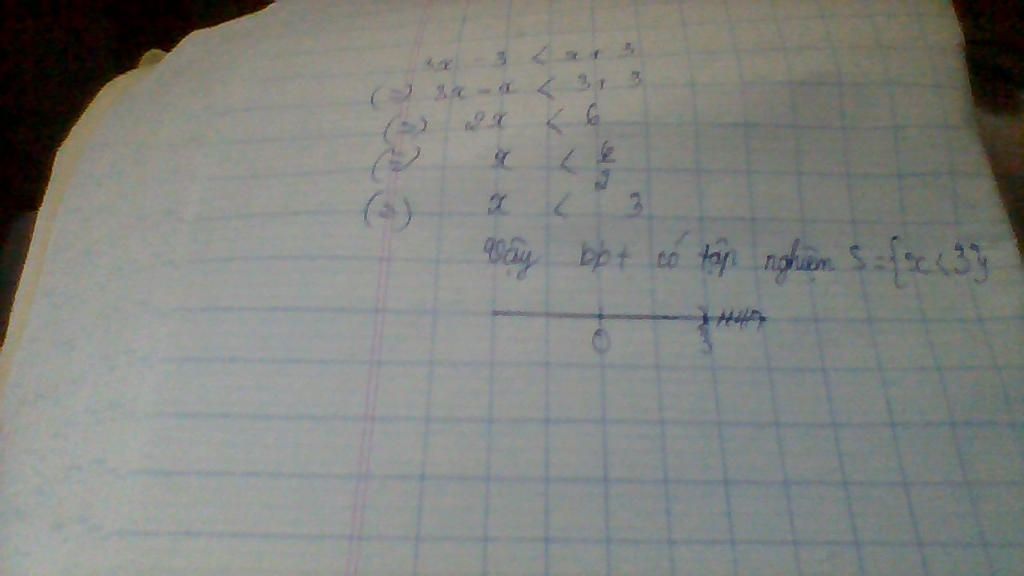 3x - 3 < x + 3
(=) 3x - x < 3 + 3
(=) 2x < 6
(=) x < 6/2
(=) x < 3
Vậy bpt có tập nghiệm S = {x < 3}
0 3